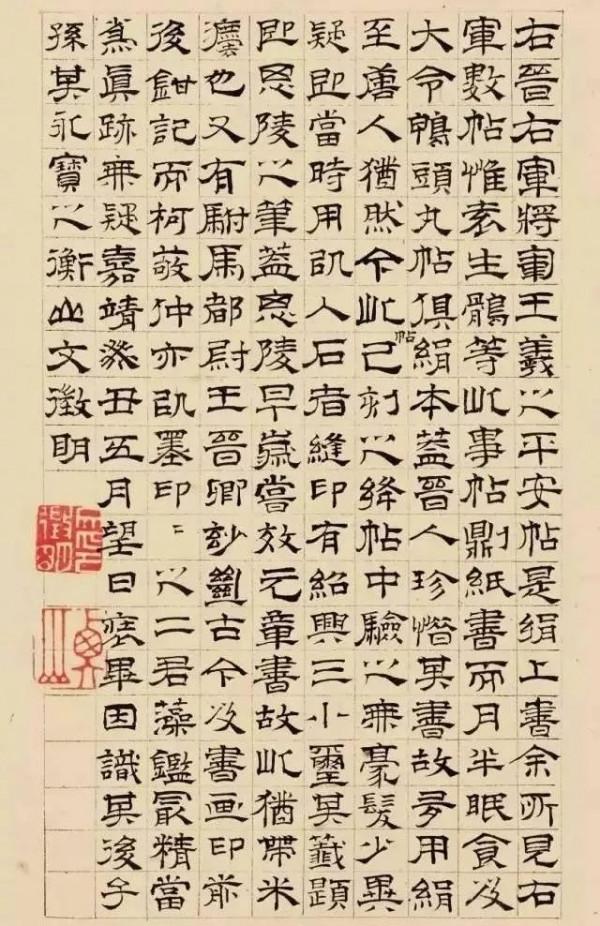 右晉右軍將軍王羲之平安帖是絹上書余所見右
軍數帖惟袁生鶻等此事帖則紙書而月半眠食及
大令鴨頭丸帖俱絹本蓋晉人珍惜其書故多用絹
至唐人猶然今此帖已刻之絳帖中驗之無豪髮少異
疑即當時用以入石者縫印有紹興三小璽其籤題
即思陵之筆蓋思陵早歲嘗效元章書故此猶帶米
也又有駙馬都尉王晉卿玅古今及書画印
後鉗記而柯敬仲亦以墨印〻之二君藻鑑最精當
為眞跡無疑嘉靖癸丑五月望日裝畢因識其後子
孫其永寶之衡山文徵明